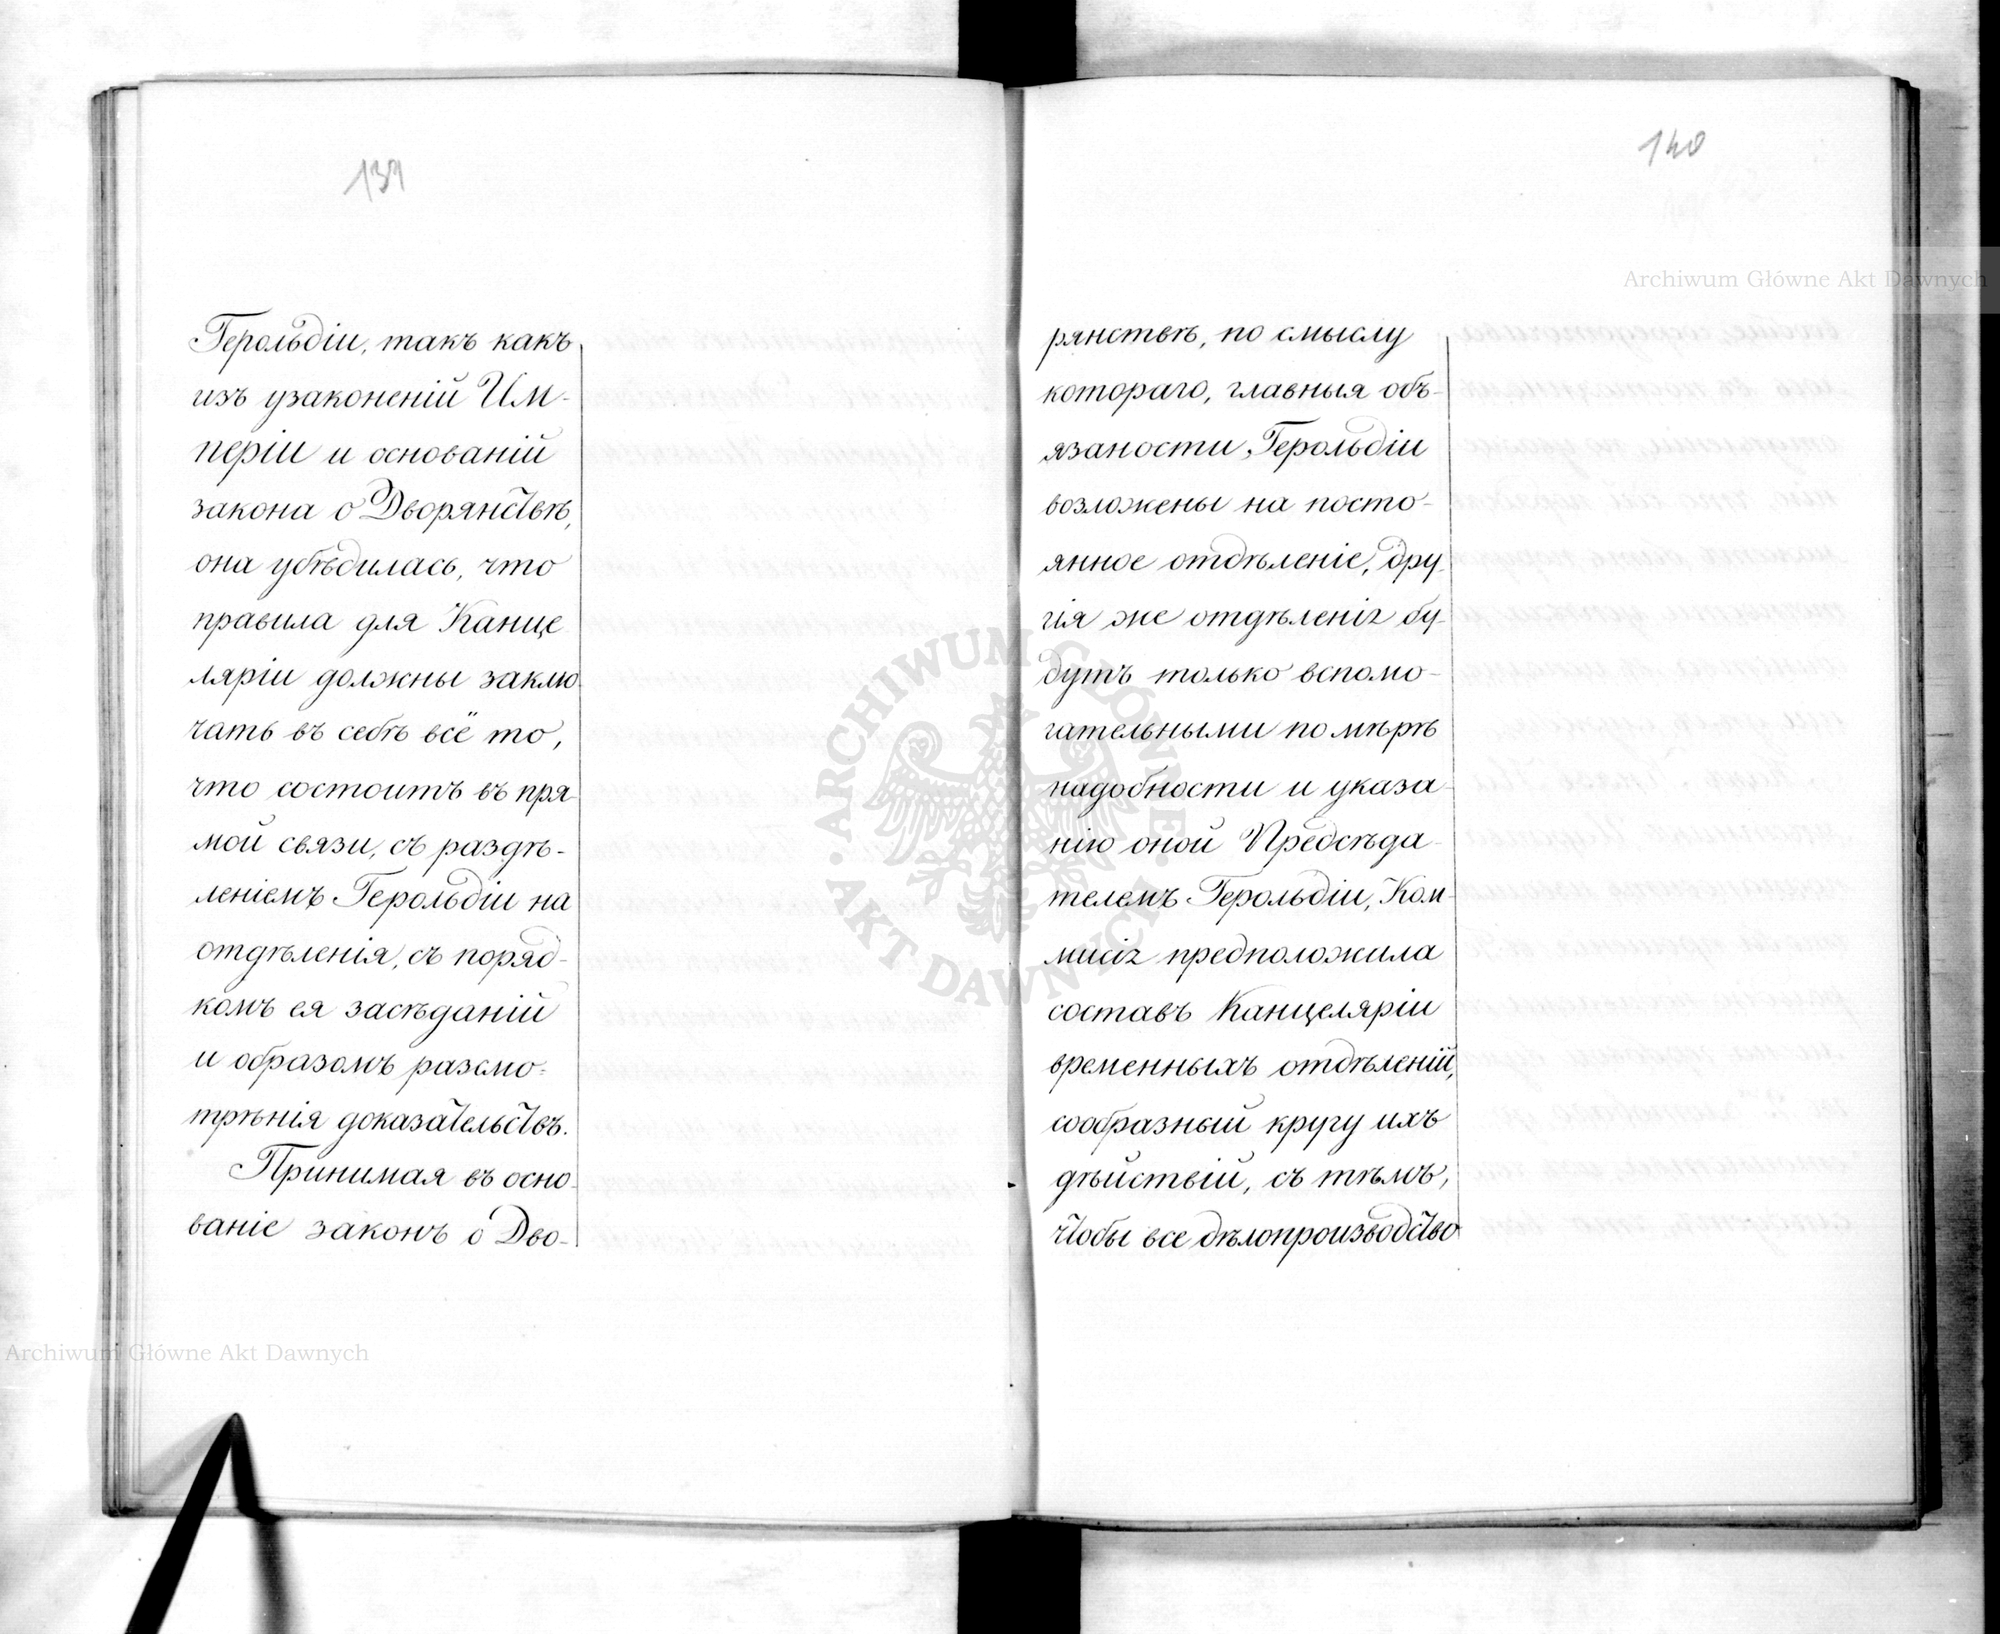 139
Герольдіи, такъ какъ
изъ узаконеній Им-
періи и основаній
закона о Дворянствѣ,
она убѣдилась, что
правила для Канце
ляріи должны заклю-
чать въ себѣ всё то,
что состоитъ въ пря-
мой связи, съ раздѣ-
леніемъ Герольдіи на
отдѣленія, съ поряд-
комъ ея засѣданій
и образомъ разсмо-
трѣнія доказательствъ.
Принимая въ осно-
ваніе законъ о Дво-
140
рянствѣ, по смыслу
котораго, главныя объ-
язаности Герольдіи
возложены на посто-
янное отдѣленіе, дру-
гія же отдѣленія бу-
дутъ только вспомо-
гательными по мѣрѣ
надобности и указа-
нію оной Предсѣда-
телемъ Герольдіи, Ком-
мисія предположила
составъ Канцеляріи
временныхъ отдѣленій,
сообразный кругу ихъ
дѣйствій, съ тѣмъ,
чтобы все дѣлопроизводство
Archiwum Główne Akt Dawnych
ARCHIWUM GŁÓWNE AKT DAWNYCH
Archiwum Główne Akt Dawnych